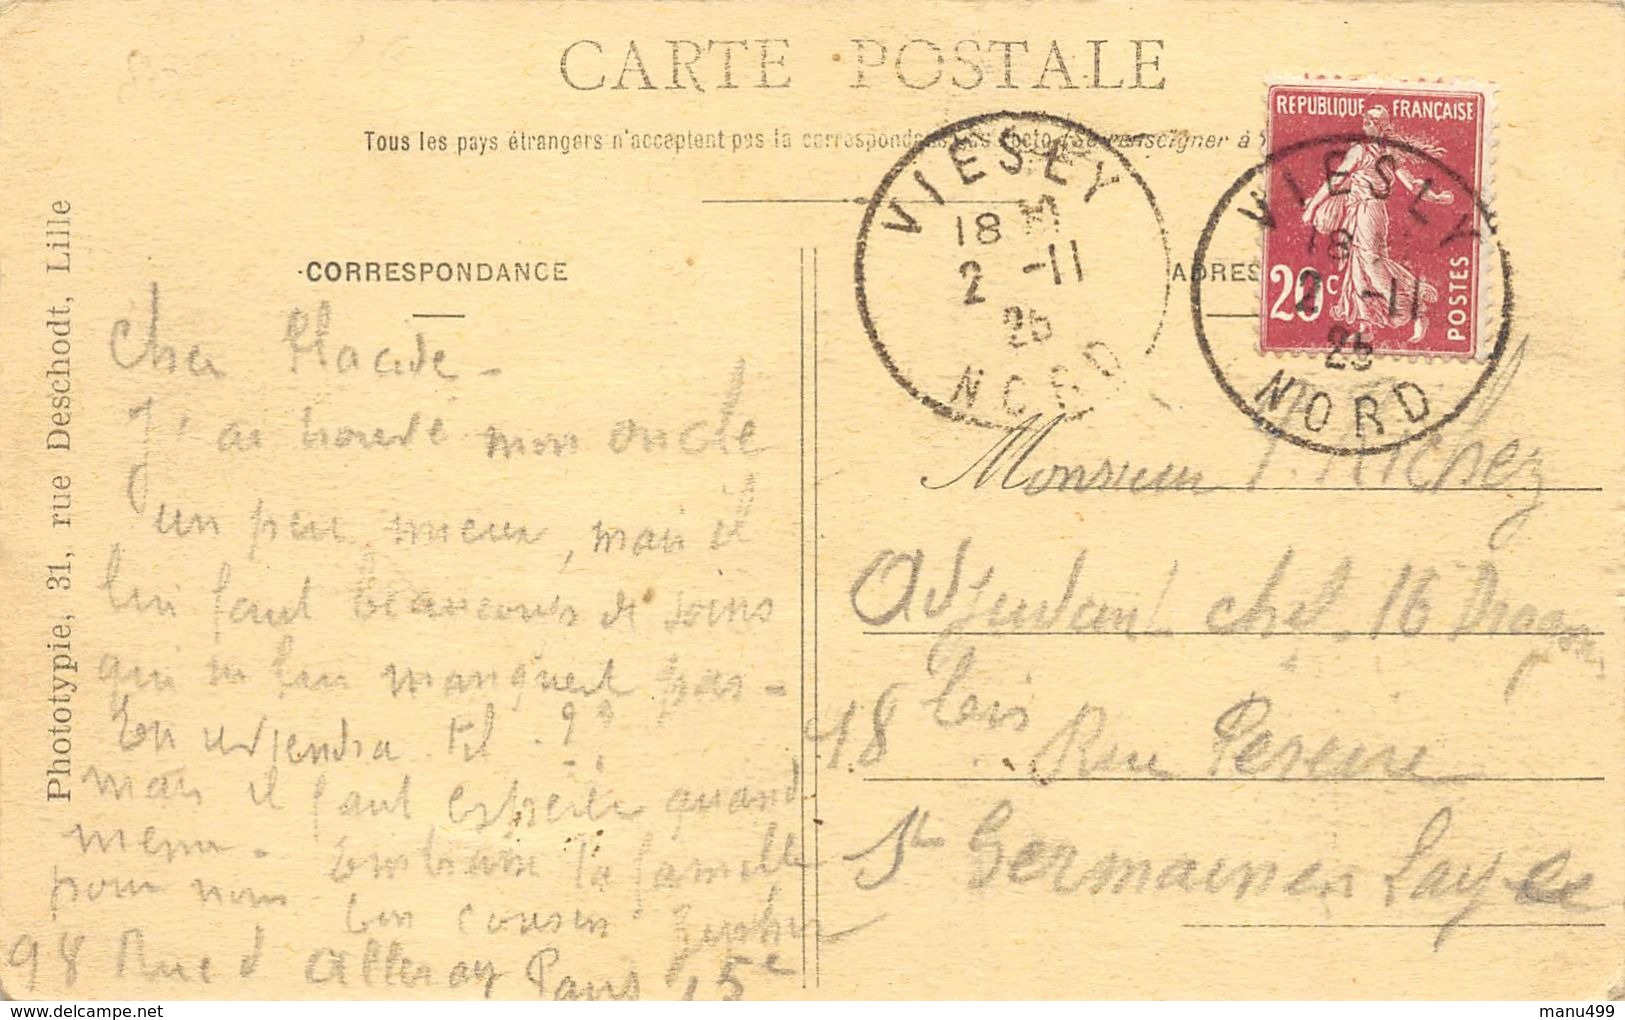 CARTE POSTALE
Tous les pays étrangers n'acceptent pas la correspondance au recto (Se renseigner à
CORRESPONDANCE
ADRES
Phototypie, 31, rue Deschodt, Lille
VIESLY
18
2 -11
25
NORD
VIESLY
18
2 -11
25
NORD
REPUBLIQUE FRANÇAISE
20c
POSTES
Cher Placide -
J'ai trouvé mon oncle
un peu mieux, mais il
lui faut beaucoup de soins
qui ne lui manquent pas -
En reviendra t'il ??
mais il faut espérer quand
meme - Embrasse ta famille
pour nous ton cousin Zephir
98 Rue d'Alleray Paris 15e
Monsieur P. Richez
Adjudant chef 16 Dragons
48 bis Rue Pereire
St Germain en Laye
manu499